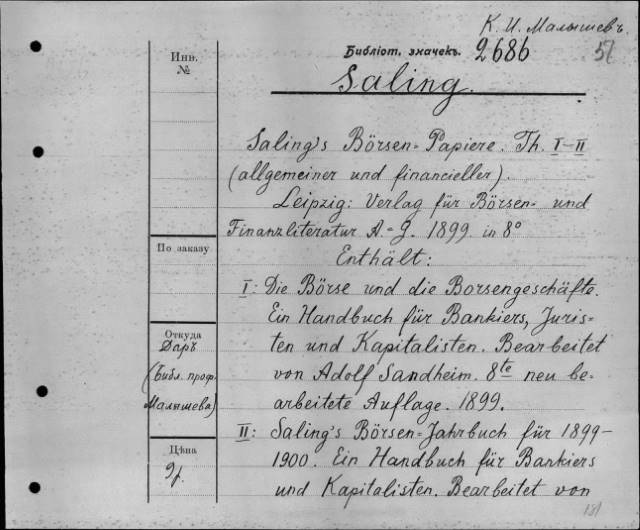 К. И. Малышевъ.
Библіот. значекъ. 2686
57
Saling.
Инв.
№
Saling's Börsen-Papiere. Th. I-II
(allgemeiner und financieller).
Leipzig: Verlag für Börsen- und
Finanzliteratur A.-G. 1899 in 8°
По заказу
Enthält:
I: Die Börse und die Borsengeschäfte.
Ein Handbuch für Bankiers, Juris-
ten und Kapitalisten. Bearbeitet
von Adolf Sandheim. 8te neu be-
arbeitete Auflage. 1899.
Откуда
Даръ
(Библ. проф.
Малышева)
II: Saling's Börsen-Jahrbuch für 1899-
1900. Ein Handbuch für Bankiers
und Kapitalisten. Bearbeitet von
Цѣна
181